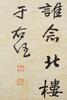 誰念北樓
于右任